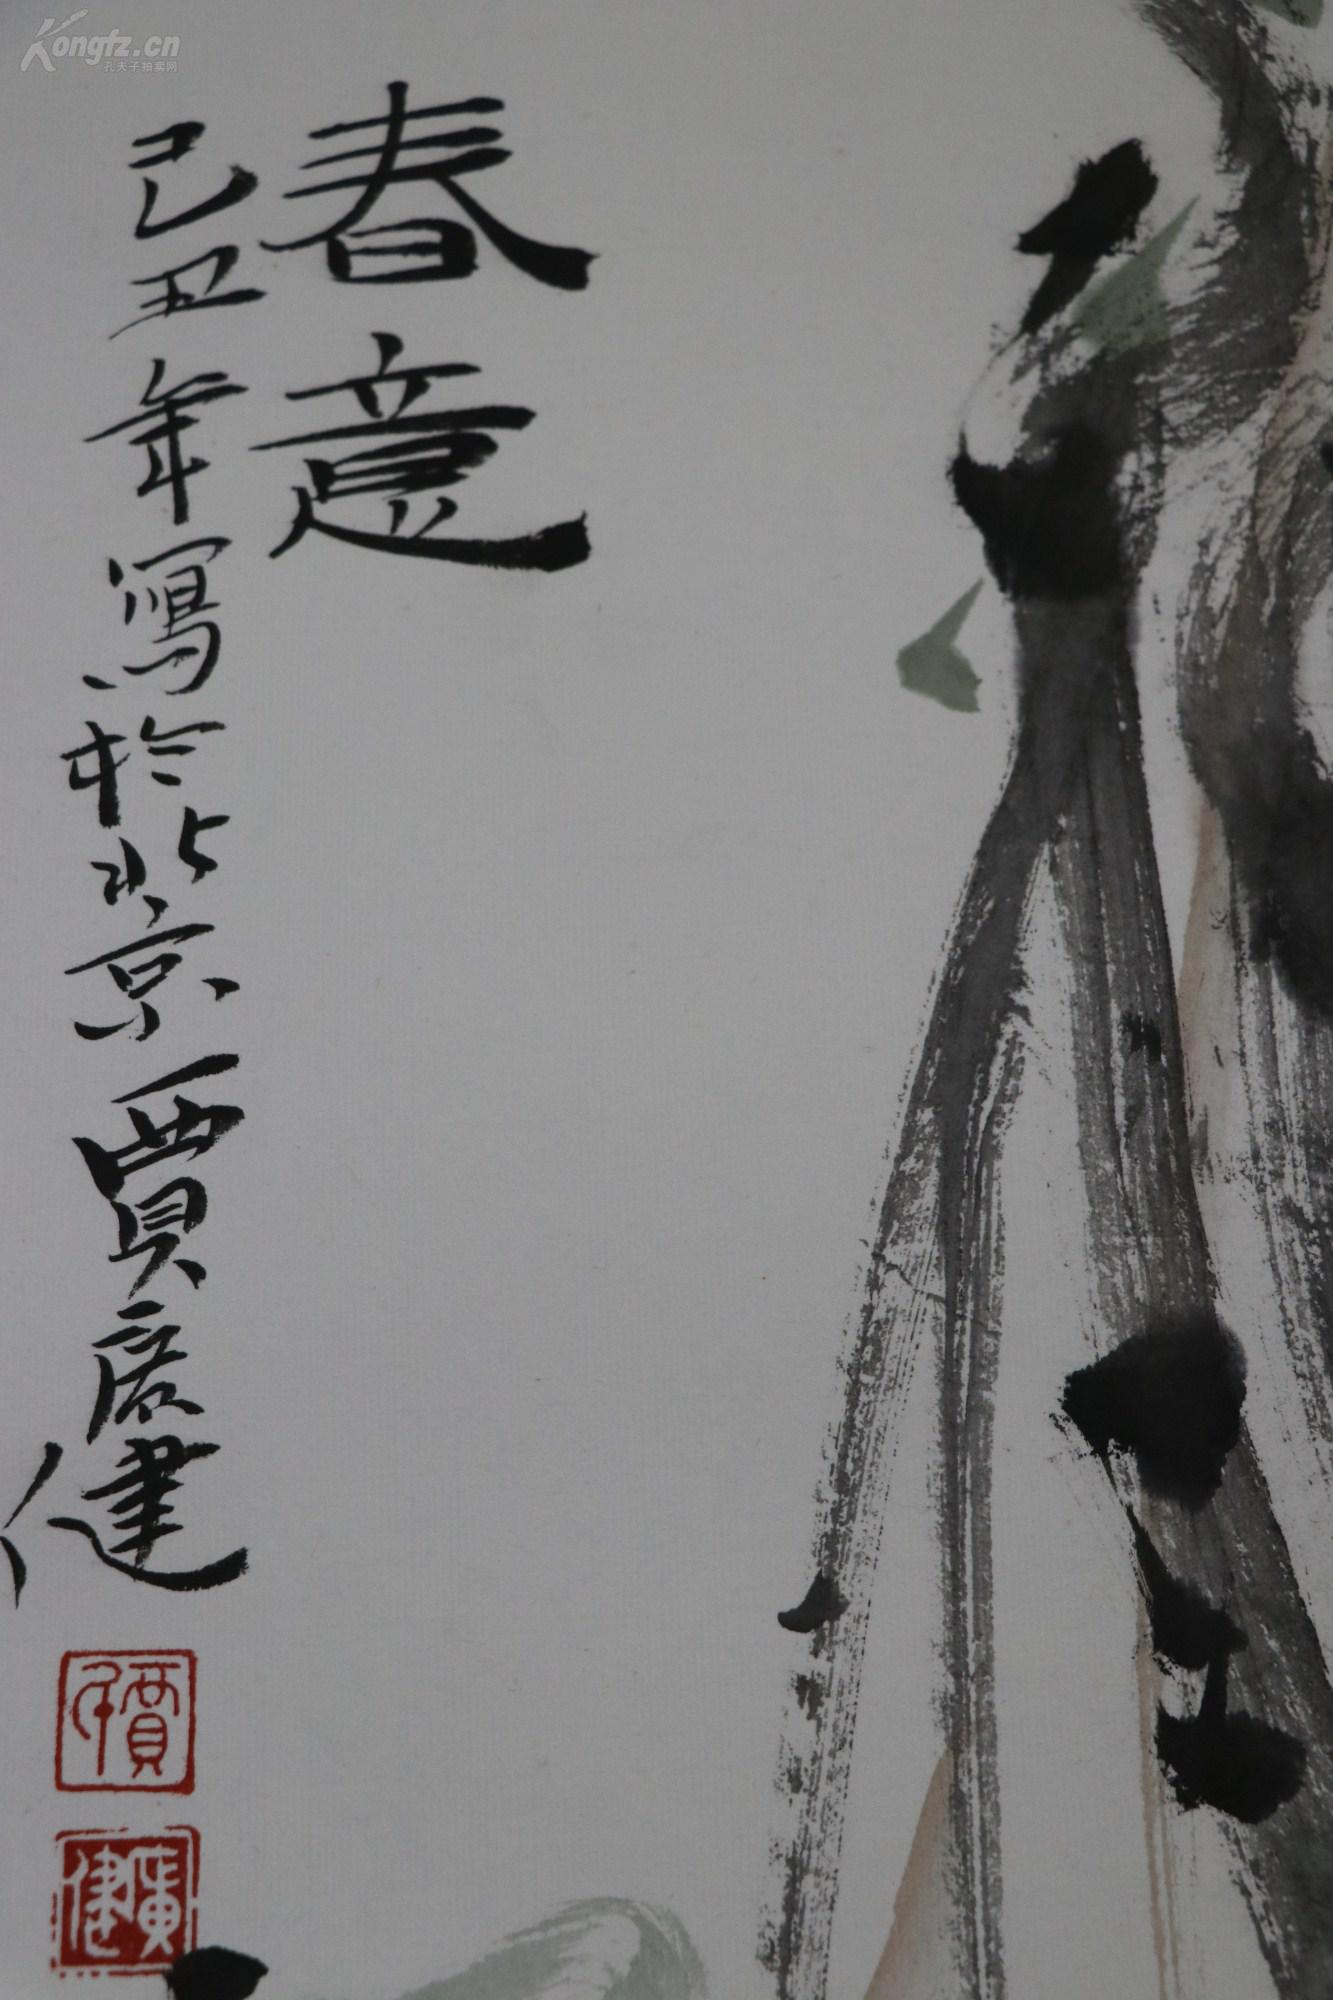 Kongfz.cn
孔夫子拍卖网
春意
己丑年寫於北京賈广健
賈
廣健